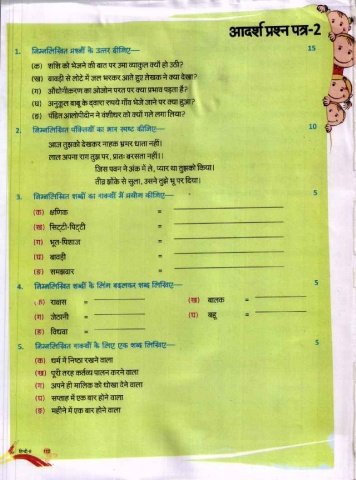 आदर्श प्रश्न पत्र-2
1. निम्नलिखित प्रश्नों के उत्तर दीजिए— 15
(क) शशि को भेजने की बात पर उमा व्याकुल क्यों हो उठी?
(ख) बावड़ी से लोटे में जल भरकर आते हुए लेखक ने क्या देखा?
(ग) औद्योगीकरण का ओजोन परत पर क्या प्रभाव पड़ता है?
(घ) अनुकूल बाबू के द्वारा रुपये गाँव भेजे जाने पर क्या हुआ?
(ङ) पंडित आलोपीदीन ने वंशीधर को क्यों गले लगा लिया?
2. निम्नलिखित पंक्तियों का भाव स्पष्ट कीजिए— 10
आज तुझको देखकर नाहक भ्रमर धाता नहीं।
लाल अपना राग तुझ पर, प्रातः बरसता नहीं।।
जिस पवन ने अंक में ले, प्यार था तुझको किया।
तीव्र झोंके से सुला, उसने तुझे भू पर दिया।
3. निम्नलिखित शब्दों का वाक्यों में प्रयोग कीजिए— 5
(क) क्षणिक =
(ख) सिट्टी-पिट्टी =
(ग) भूत-पिशाच =
(घ) बावड़ी =
(ङ) समझदार =
4. निम्नलिखित शब्दों के लिंग बदलकर शब्द लिखिए— 5
(क) राक्षस = (ख) बालक =
(ग) जेठानी = (घ) बहू =
(ङ) विधवा =
5. निम्नलिखित वाक्यों के लिए एक शब्द लिखिए— 5
(क) धर्म में निष्ठा रखने वाला
(ख) पूरी तरह कर्तव्य पालन करने वाला
(ग) अपने ही मालिक को धोखा देने वाला
(घ) सप्ताह में एक बार होने वाला
(ङ) महीने में एक बार होने वाला